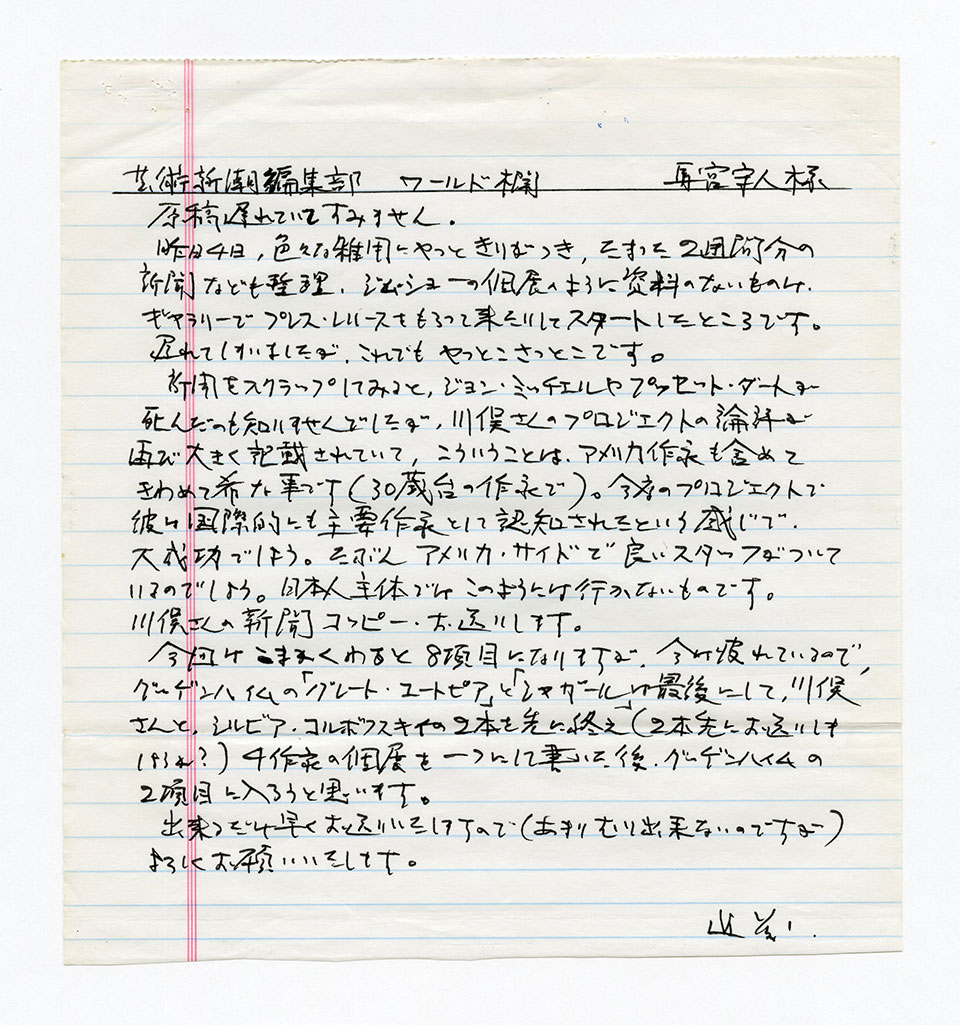 芸術新潮編集部 ワールド欄 馬宮宰人様
原稿遅れていてすみません。
昨日4日，色々な雑用にやっときりがつき，たまった2週間分の
新聞なども整理、ジムショーの個展のように資料のないものは、
ギャラリーでプレス・レリースをもらって来たりしてスタートしたところです。
遅れてしまいましたが、これでもやっとこさっとこです。
新聞をスクラップしてみると，ジョン・ミッチェルやプッセット・ダートが
死んだのも知りませんでしたが，川俣さんのプロジェクトの論評が
再び大きく記載されていて，こういうことは、アメリカ作家も含めて
きわめて希な事です（30歳台の作家で）。今度のプロジェクトで
彼は国際的にも主要作家として認知されたという感じで、
大成功でしょう。たぶんアメリカ・サイドで良いスタッフがついて
いるのでしょう。日本人主体ではこのようには行かないものです。
川俣さんの新聞コッピー・お送りします。
今回はこまかくわると8項目になりますが、今は疲れているので，
グッゲンハイムの「グレート・ユートピア」と「シャガール」は最後にして，川俣
さんと，シルビア・コルボウスキイの2本を先に終え（2本先にお送りしま
しょうか？）4作家の個展を一つにして書いた後、グッゲンハイムの
2項目に入ろうと思います。
出来るだけ早くお送りいたしますので（あまりむり出来ないのですが）
よろしくお願いいたします。